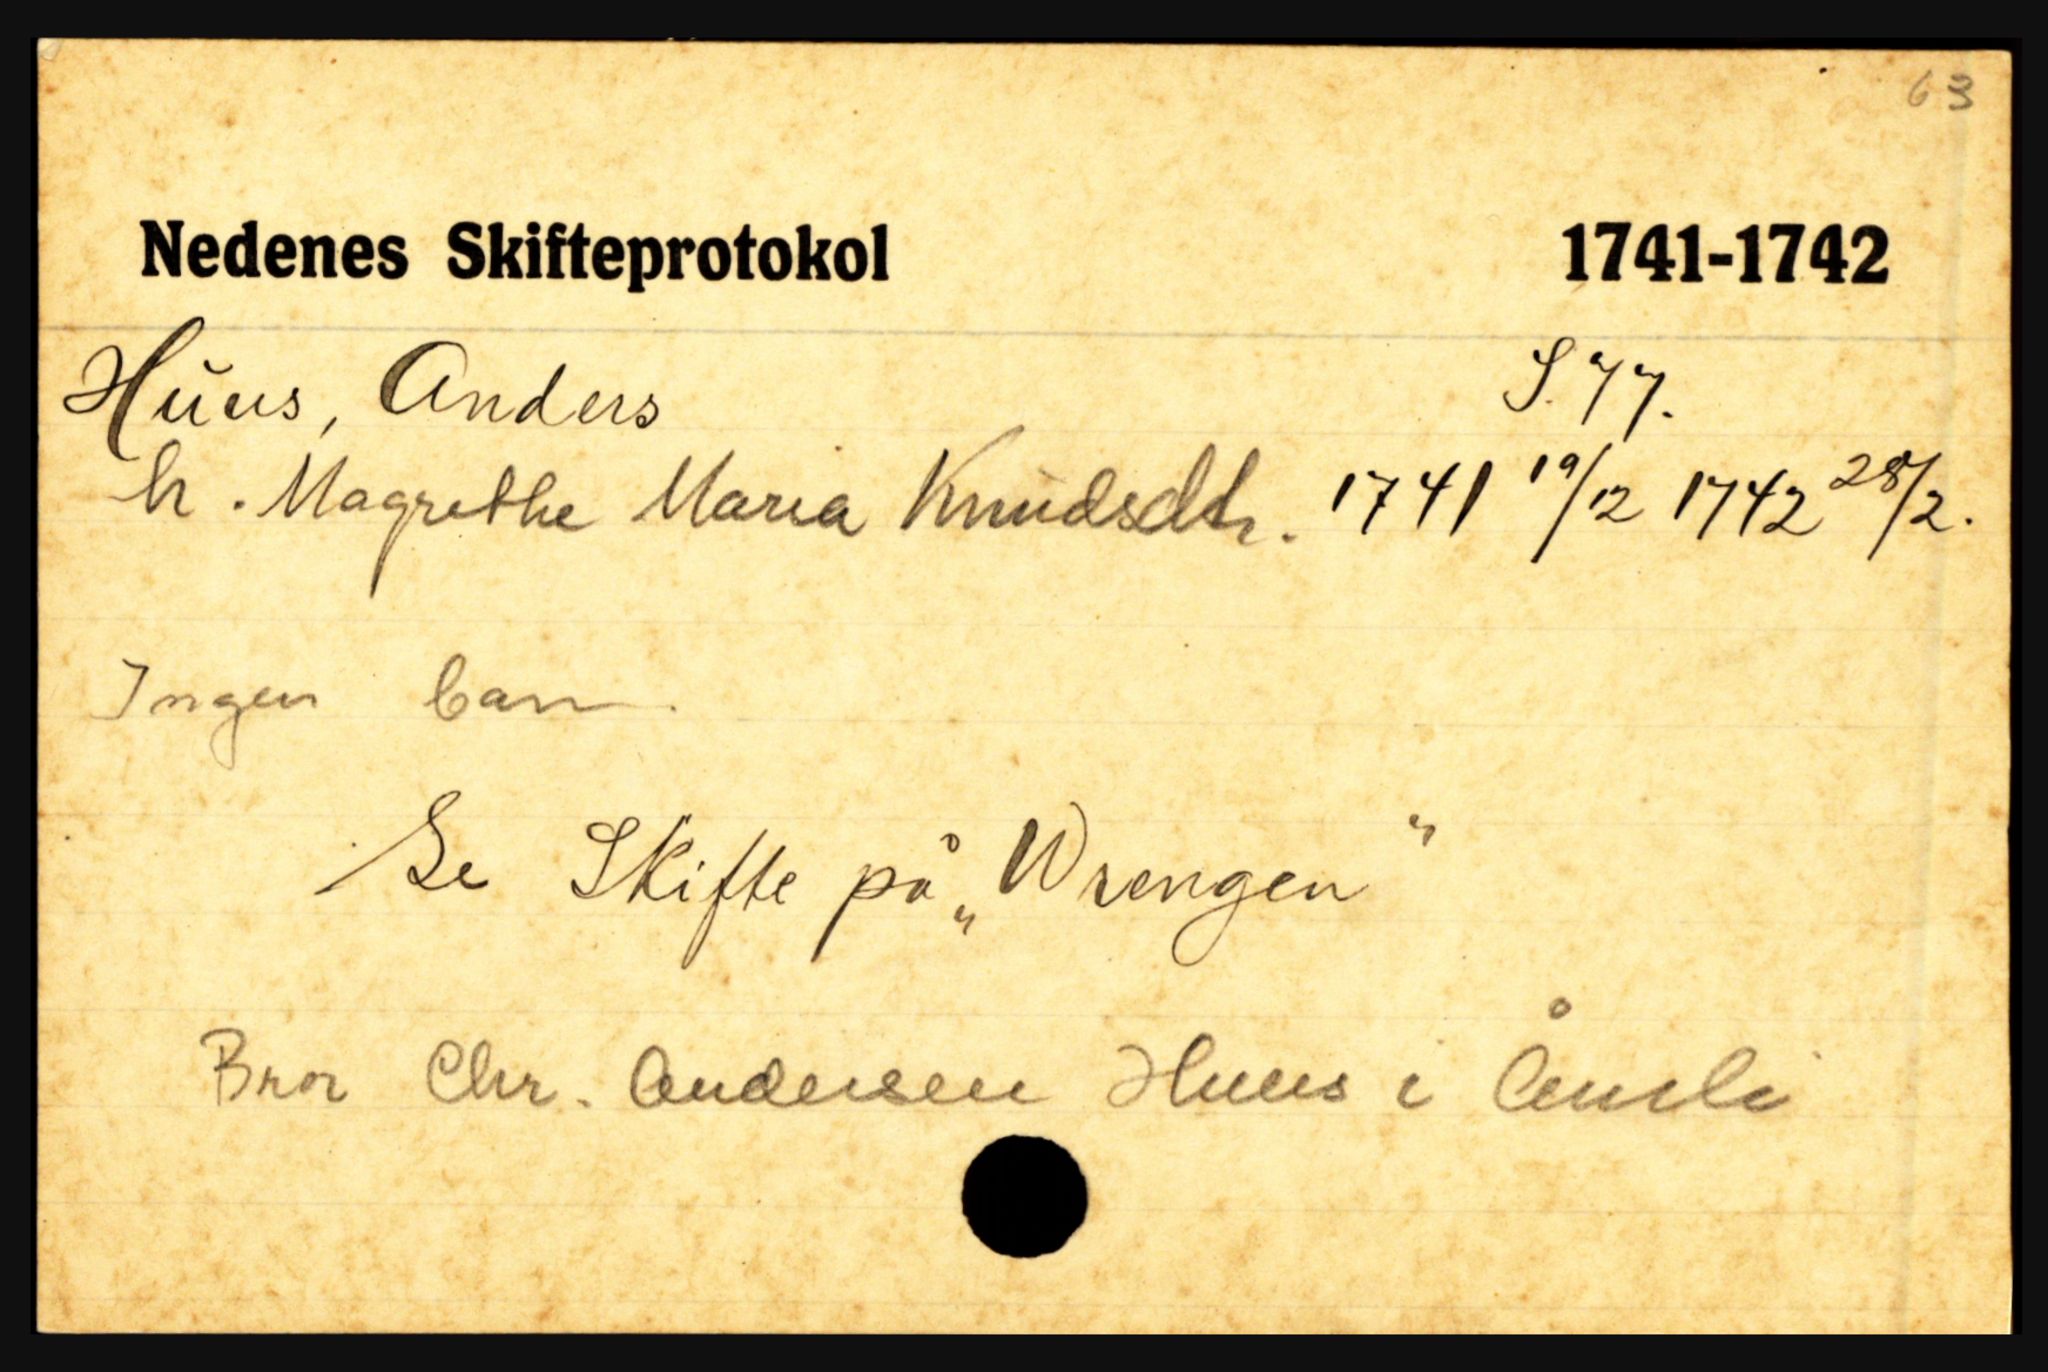 63
Nedenes Skifteprotokol 1741-1742
Huus, Anders S. 77.
h. Magrethe Maria Knudsdtr. 1741 19/12 1742 28/2.
Ingen barn.
Se Skifte på „Wrengen"
Bror Chr. Andersen Huus i Åmli